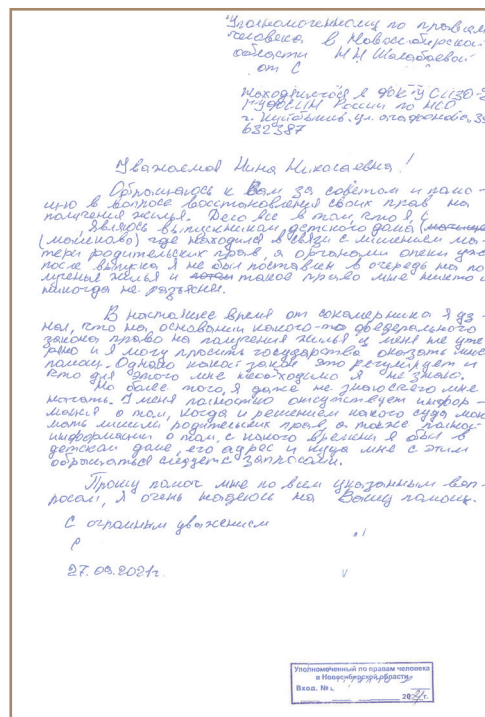 Уполномоченному по правам
человека в Новосибирской
области Н Н Шалабаевой
от С
Находящегося в ФКУ СИЗО-2
ГУФСИН России по НСО
г. Куйбышев. ул. агафонова, 3
632387
Уважаемая Нина Николаевна!
Обращаюсь к Вам за советом и помо-
щью в вопросе восстановления своих прав на
получения жилья. Дело все в том, что я, С
, являюсь выпускником детского дома
(мамоново) где находился в связи с лишением ма-
тери родительских прав, а органами опеки уже
после выпуска я не был поставлен в очередь на по-
лученье жилья и такое право мне никто и
никогда не разъяснял.
В настоящее время от сокамерника я уз-
нал, что на основании какого-то федерального
закона право на получения жилья у меня не уте-
рано и я могу просить государство оказать мне
помощь. Однако какой закон это регулирует и
что для этого мне необходимо я не знаю.
Но более того, я даже не знаю с чего мне
начать. У меня полностью отсутствует инфор-
мация о том, когда и решением какого суда мою
мать лишили родительских прав, а также
информации о том, с какого времени я был в
детском доме, его адрес и куда мне с этим
обращаться следует с запросами.
Прошу помочь мне по всем указанным воп-
росам, я очень надеюсь на Вашу помощь.
С огромным уважением
С
27.09.2021г.
Уполномоченный по правам человека
в Новосибирской области
Вход. №
2021 г.